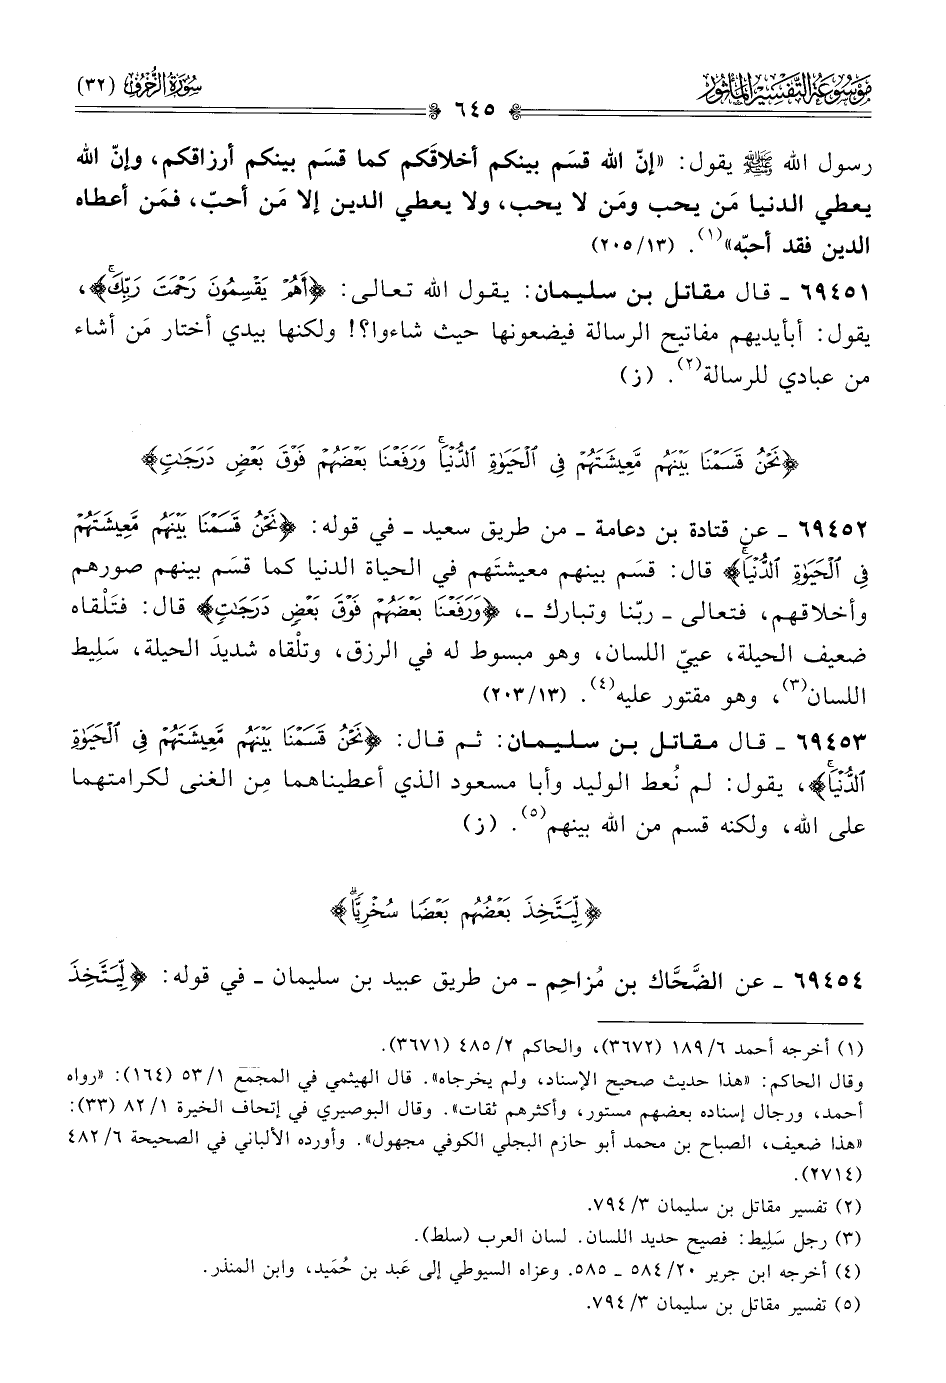 موسوعة التفسير المأثور
سورة الزخرف (٣٢)
٦٤٥
رسول الله ﷺ يقول: «إنّ الله قسَم بينكم أخلاقَكم كما قسَم بينكم أرزاقكم، وإنّ الله
يعطي الدنيا مَن يحب ومَن لا يحب، ولا يعطي الدين إلا مَن أحبّ، فمَن أعطاه
الدين فقد أحبّه»(١). (٢٠٥/١٣)
٦٩٤٥١ ـ قال مقاتل بن سليمان: يقول الله تعالى: ﴿أَهُمْ يَقْسِمُونَ رَحْمَتَ رَبِّكَۚ﴾،
يقول: أبأيديهم مفاتيح الرسالة فيضعونها حيث شاءوا؟! ولكنها بيدي أختار مَن أشاء
من عبادي للرسالة(٢). (ز)
﴿نَحْنُ قَسَمْنَا بَيْنَهُم مَّعِيشَتَهُمْ فِي ٱلْحَيَوٰةِ ٱلدُّنْيَاۚ وَرَفَعْنَا بَعْضَهُمْ فَوْقَ بَعْضٍ دَرَجَٰتٍ﴾
٦٩٤٥٢ ـ عن قتادة بن دعامة ـ من طريق سعيد ـ في قوله: ﴿نَحْنُ قَسَمْنَا بَيْنَهُم مَّعِيشَتَهُمْ
فِي ٱلْحَيَوٰةِ ٱلدُّنْيَاۚ﴾ قال: قسَم بينهم معيشتَهم في الحياة الدنيا كما قسَم بينهم صورهم
وأخلاقهم، فتعالى ـ ربّنا وتبارك ـ، ﴿وَرَفَعْنَا بَعْضَهُمْ فَوْقَ بَعْضٍ دَرَجَٰتٍ﴾ قال: فتَلْقاه
ضعيف الحيلة، عييّ اللسان، وهو مبسوط له في الرزق، وتلْقاه شديدَ الحيلة، سَلِيط
اللسان(٣)، وهو مقتور عليه(٤). (٢٠٣/١٣)
٦٩٤٥٣ ـ قال مقاتل بن سليمان: ثم قال: ﴿نَحْنُ قَسَمْنَا بَيْنَهُم مَّعِيشَتَهُمْ فِي ٱلْحَيَوٰةِ
ٱلدُّنْيَاۚ﴾، يقول: لم نُعط الوليد وأبا مسعود الذي أعطيناهما مِن الغنى لكرامتهما
على الله، ولكنه قسم من الله بينهم(٥). (ز)
﴿لِّيَتَّخِذَ بَعْضُهُم بَعْضًا سُخْرِيًّاۗ﴾
٦٩٤٥٤ ـ عن الضَّحَّاك بن مُزاحِم ـ من طريق عبيد بن سليمان ـ في قوله: ﴿لِّيَتَّخِذَ
(١) أخرجه أحمد ٦/ ١٨٩ (٣٦٧٢)، والحاكم ٢/ ٤٨٥ (٣٦٧١).
وقال الحاكم: «هذا حديث صحيح الإسناد، ولم يخرجاه». قال الهيثمي في المجمّع ١/ ٥٣ (١٦٤): «رواه
أحمد، ورجال إسناده بعضهم مستور، وأكثرهم ثقات». وقال البوصيري في إتحاف الخيرة ١/ ٨٢ (٣٣):
«هذا ضعيف، الصباح بن محمد أبو حازم البجلي الكوفي مجهول». وأورده الألباني في الصحيحة ٦/ ٤٨٢
(٢٧١٤).
(٢) تفسير مقاتل بن سليمان ٣/ ٧٩٤.
(٣) رجل سَلِيط: فصيح حديد اللسان. لسان العرب (سلط).
(٤) أخرجه ابن جرير ٢٠/ ٥٨٤ ـ ٥٨٥. وعزاه السيوطي إلى عَبد بن حُمَيد، وابن المنذر.
(٥) تفسير مقاتل بن سليمان ٣/ ٧٩٤.